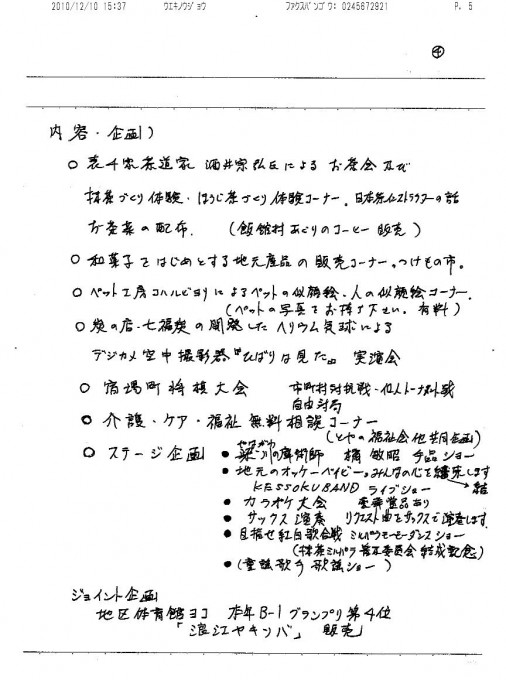 2010/12/10 15:37 ウエキノウジョウ ファクスバンゴウ: 0245672921 P. 5
④
内容・企画)
○ 表千家茶道家 酒井宗弘氏による お茶会 及び
抹茶づくり体験・ほうじ茶づくり体験コーナー、日本茶インストラクターの話
お茶菜の配布、 (飯舘村 あぐりのコーヒー 販売)
○ 和菓子をはじめとする地元産品の販売コーナー、つけもの市。
○ ペット工房コハルビヨリによるペットの似顔絵、人の似顔絵コーナー、
(ペットの写真をお持ち下さい。有料)
○ 炭の店・七福炭の開発したヘリウム気球による
デジカメ空中撮影器『ひばりは見た』 実演会
○ 宿場町将棋大会 市町村対抗戦・個人トーナメント戦
自由対局
○ 介護・ケア・福祉 無料相談コーナー
(とやの福祉会他共同企画)
○ ステージ企画 ● 梁川の魔術師 橘 敏昭 手品ショー
やながわ
● 地元のオッケーベイビー。みんなの心を結束します
KESSOKUBAND ライブショー 結
● カラオケ大会 豪華賞品あり
● サックス演奏 リクエスト曲をサックスで演奏します。
● 目指せ紅白歌合戦 ミルパラモーモーダンスショー
(抹茶ミルパラ 普及委員会 結成記念)
● (童謡歌手 歌謡ショー)
ジョイント企画
地区体育館ヨコ 本年B-1グランプリ第4位
「浪江ヤキソバ」 販売